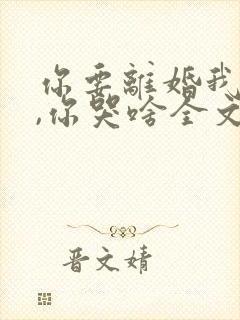 你要離婚我
,你哭啥全文
晋文婧